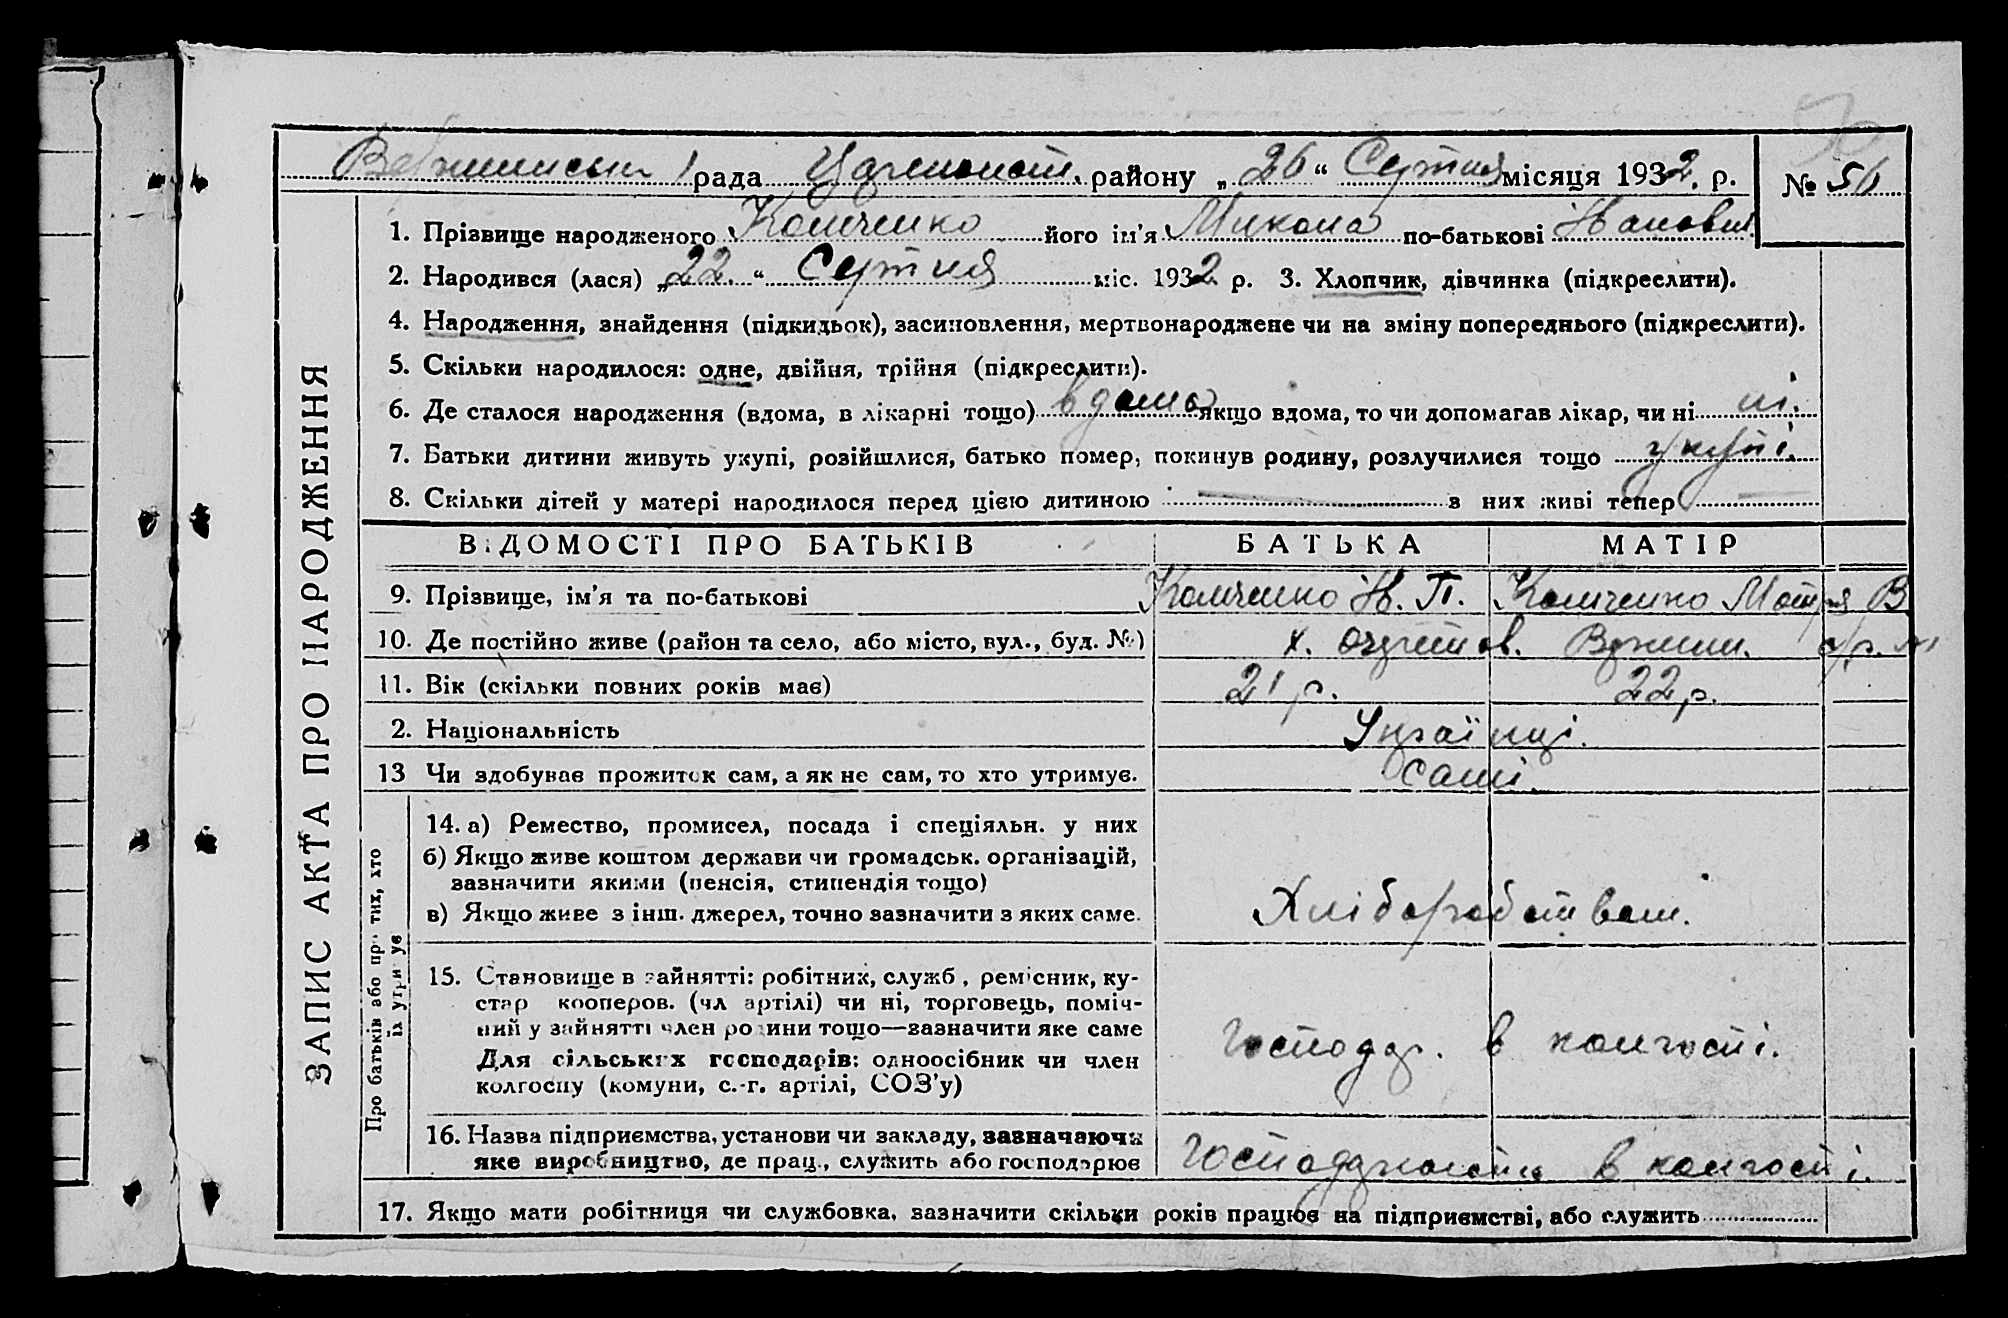 рада району „ 26 “ Серпня місяця 1932. р. № 56
1. Прізвище народженого його ім'я Микола по-батькові
2. Народився (лася) „ 22. “ Серпня міс. 1932 р. 3. Хлопчик, дівчинка (підкреслити).
4. Народження, знайдення (підкидьок), засиновлення, мертвонароджене чи на зміну попереднього (підкреслити).
5. Скільки народилося: одне, двійня, трійня (підкреслити).
6. Де сталося народження (вдома, в лікарні тощо) вдома якщо вдома, то чи допомагав лікар, чи ні ні.
7. Батьки дитини живуть укупі, розійшлися, батько помер, покинув родину, розлучилися тощо укупі.
8. Скільки дітей у матері народилося перед цією дитиною — з них живі тепер —
ЗАПИС АКТА ПРО НАРОДЖЕННЯ
ВІДОМОСТІ ПРО БАТЬКІВ БАТЬКА МАТІР
9. Прізвище, ім'я та по-батькові
10. Де постійно живе (район та село, або місто, вул., буд. №) х. с/р. №1
11. Вік (скільки повних років має) 21 р. 22 р.
2. Національність Українці.
13 Чи здобував прожиток сам, а як не сам, то хто утримує. Самі.
Про батьків або про тих, хто
їх утримує
14. а) Ремество, промисел, посада і спеціяльн. у них
б) Якщо живе коштом держави чи громадськ. організацій,
зазначити якими (пенсія, стипендія тощо)
в) Якщо живе з інш. джерел, точно зазначити з яких саме. Хліборобством.
15. Становище в зайнятті: робітник, служб., ремісник, ку-
стар кооперов. (чл артілі) чи ні, торговець, поміч-
ний у зайнятті член родини тощо—зазначити яке саме
Для сільських господарів: одноосібник чи член
колгоспу (комуни, с.-г. артілі, СОЗ'у) Господар. в колгоспі.
16. Назва підприємства, установи чи закладу, зазначаючи
яке виробництво, де прац., служить або господарює в колгоспі.
17. Якщо мати робітниця чи службовка, зазначити скільки років працює на підприємстві, або служить